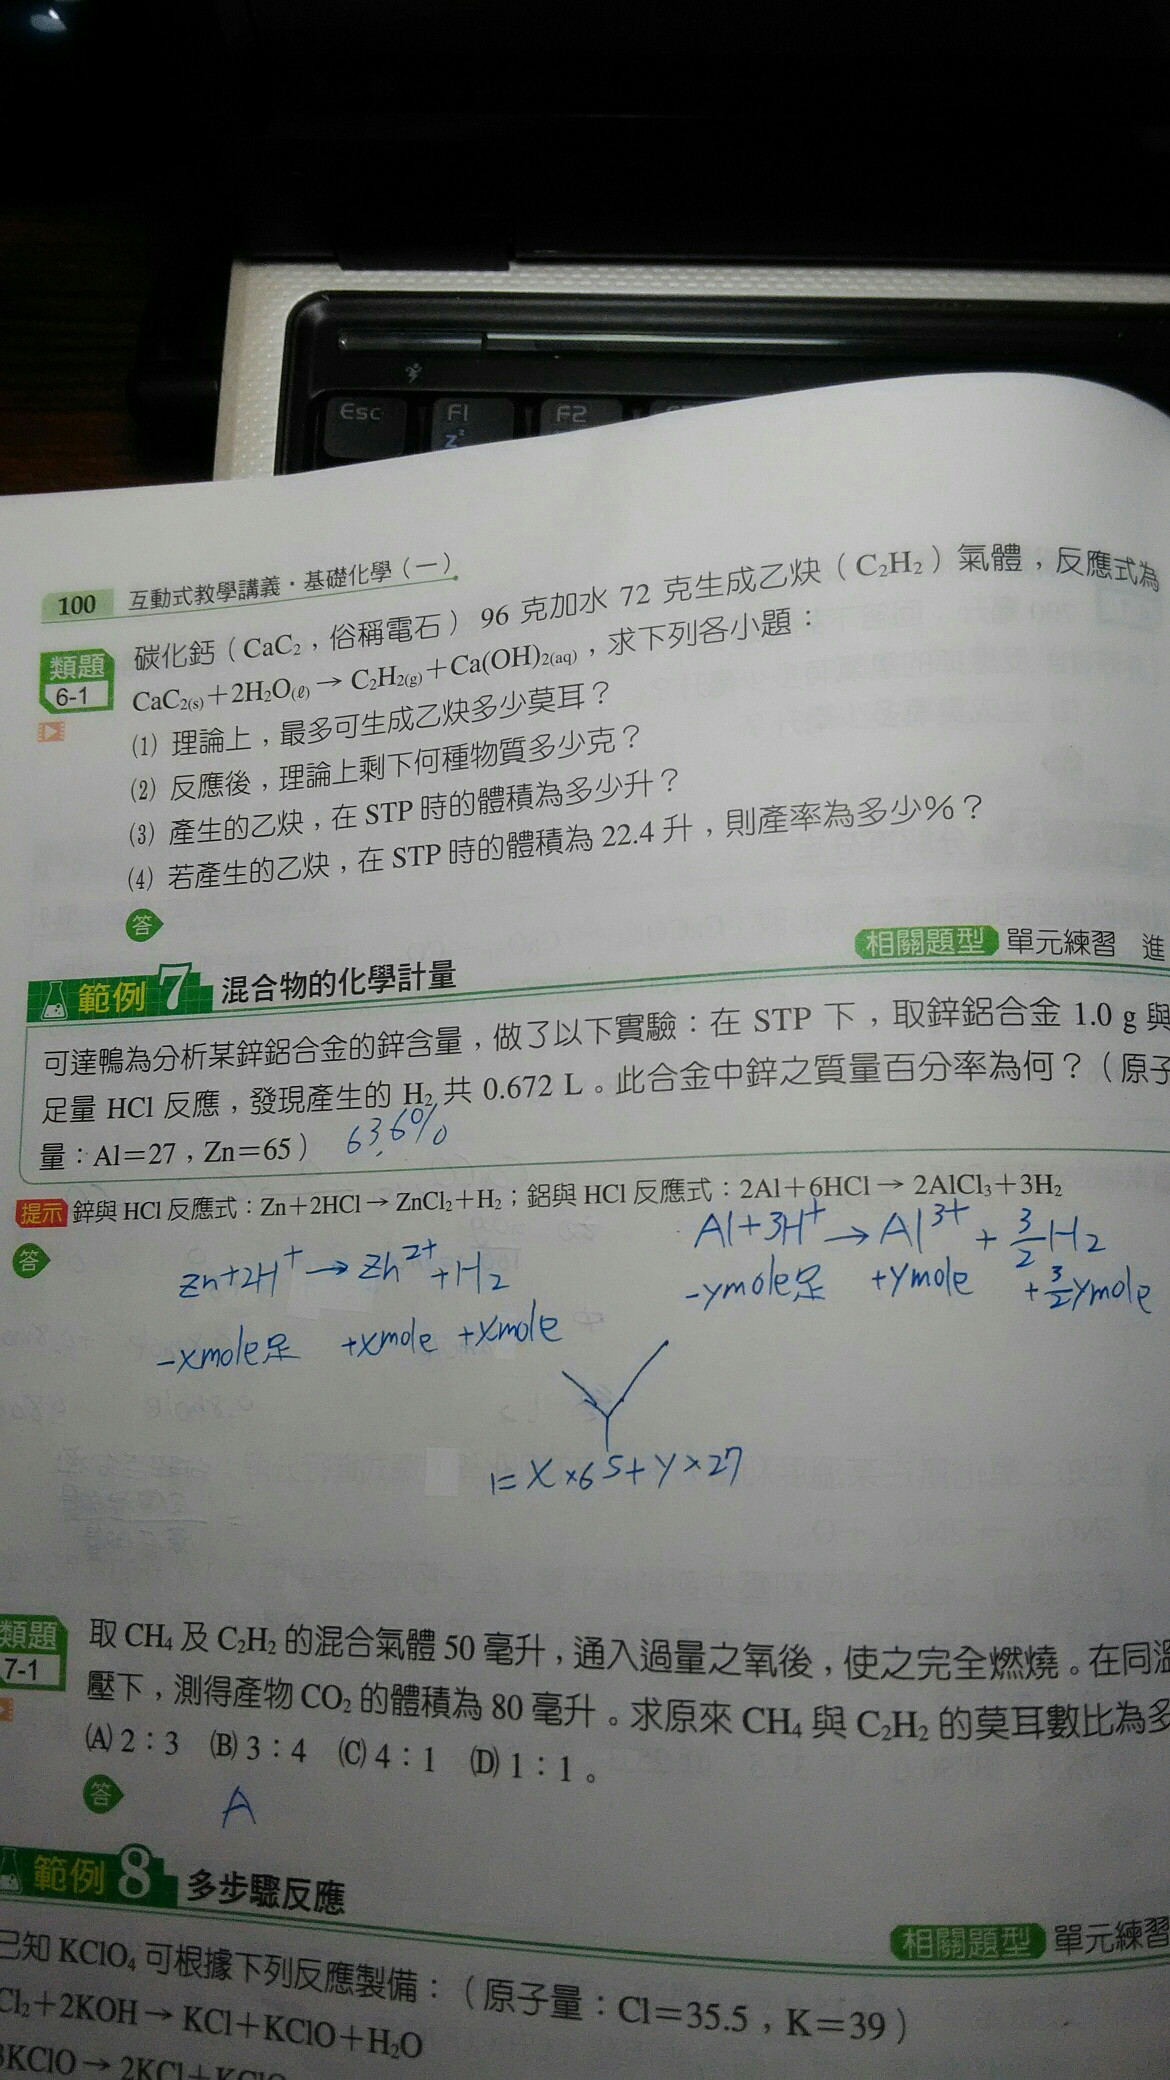 Esc F1 F2
z
100 互動式教學講義・基礎化學(一)
類題 6-1 碳化鈣(CaC₂,俗稱電石)96 克加水 72 克生成乙炔(C₂H₂)氣體,反應式為
CaC₂(s)+2H₂O(ℓ)→C₂H₂(g)+Ca(OH)₂(aq),求下列各小題:
(1) 理論上,最多可生成乙炔多少莫耳?
(2) 反應後,理論上剩下何種物質多少克?
(3) 產生的乙炔,在 STP 時的體積為多少升?
(4) 若產生的乙炔,在 STP 時的體積為 22.4 升,則產率為多少%?
答
相關題型 單元練習 進
範例 7 混合物的化學計量
可達鴨為分析某鋅鋁合金的鋅含量,做了以下實驗:在 STP 下,取鋅鋁合金 1.0 g 與
足量 HCl 反應,發現產生的 H₂ 共 0.672 L。此合金中鋅之質量百分率為何?(原子
量:Al=27,Zn=65) 63.6%
提示 鋅與 HCl 反應式:Zn+2HCl→ZnCl₂+H₂;鋁與 HCl 反應式:2Al+6HCl→2AlCl₃+3H₂
答
Zn+2H⁺→Zn²⁺+H₂ Al+3H⁺→Al³⁺+3/2H₂
-xmole足 +xmole +xmole -ymole足 +ymole +3/2ymole
1=X×65+Y×27
類題 7-1 取 CH₄ 及 C₂H₂ 的混合氣體 50 毫升,通入過量之氧後,使之完全燃燒。在同溫
壓下,測得產物 CO₂ 的體積為 80 毫升。求原來 CH₄ 與 C₂H₂ 的莫耳數比為多
(A) 2:3 (B) 3:4 (C) 4:1 (D) 1:1。
答 A
範例 8 多步驟反應
相關題型 單元練習
已知 KClO₄ 可根據下列反應製備:(原子量:Cl=35.5,K=39)
Cl₂+2KOH→KCl+KClO+H₂O
3KClO→2KCl+KClO